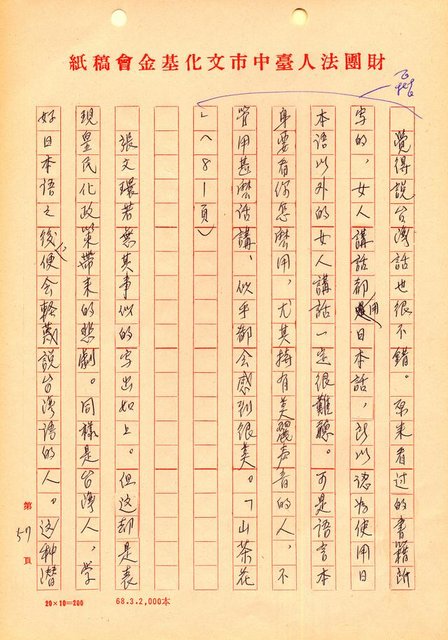 財團法人臺中市文化基金會稿紙
覺得說台灣話也很不錯。原來看过的書籍所
写的，女人講話都用日本話，所以認為使用日
本語以外的女人講話一定很難聽。可是語言本
身要看你怎麼用，尤其擁有美麗声音的人，不
管用甚麼話講，似乎都会感到很美。「山茶花
」（81頁）
張文環若無其事似的写出如上。但这却是表
現皇民化政策帶来的悲劇。同樣是台湾人，学
好日本語之後，便会輕蔑說台湾語的人。这种潜
第57頁
20×10=200
68.3.2,000本